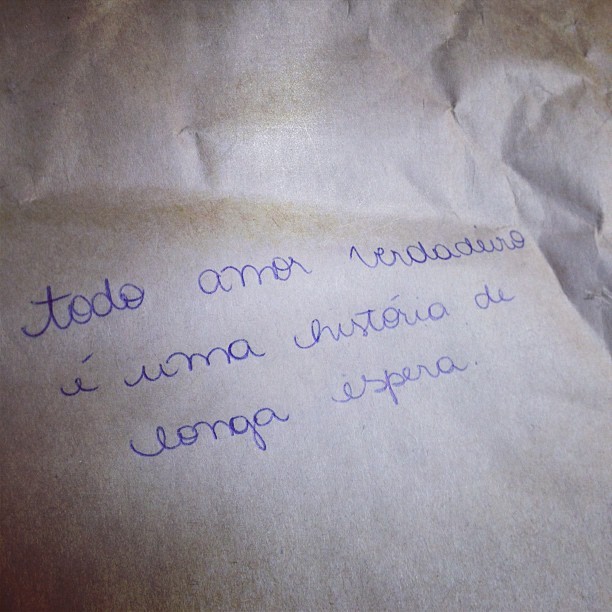 todo amor verdadeiro
é uma história de
longa espera.